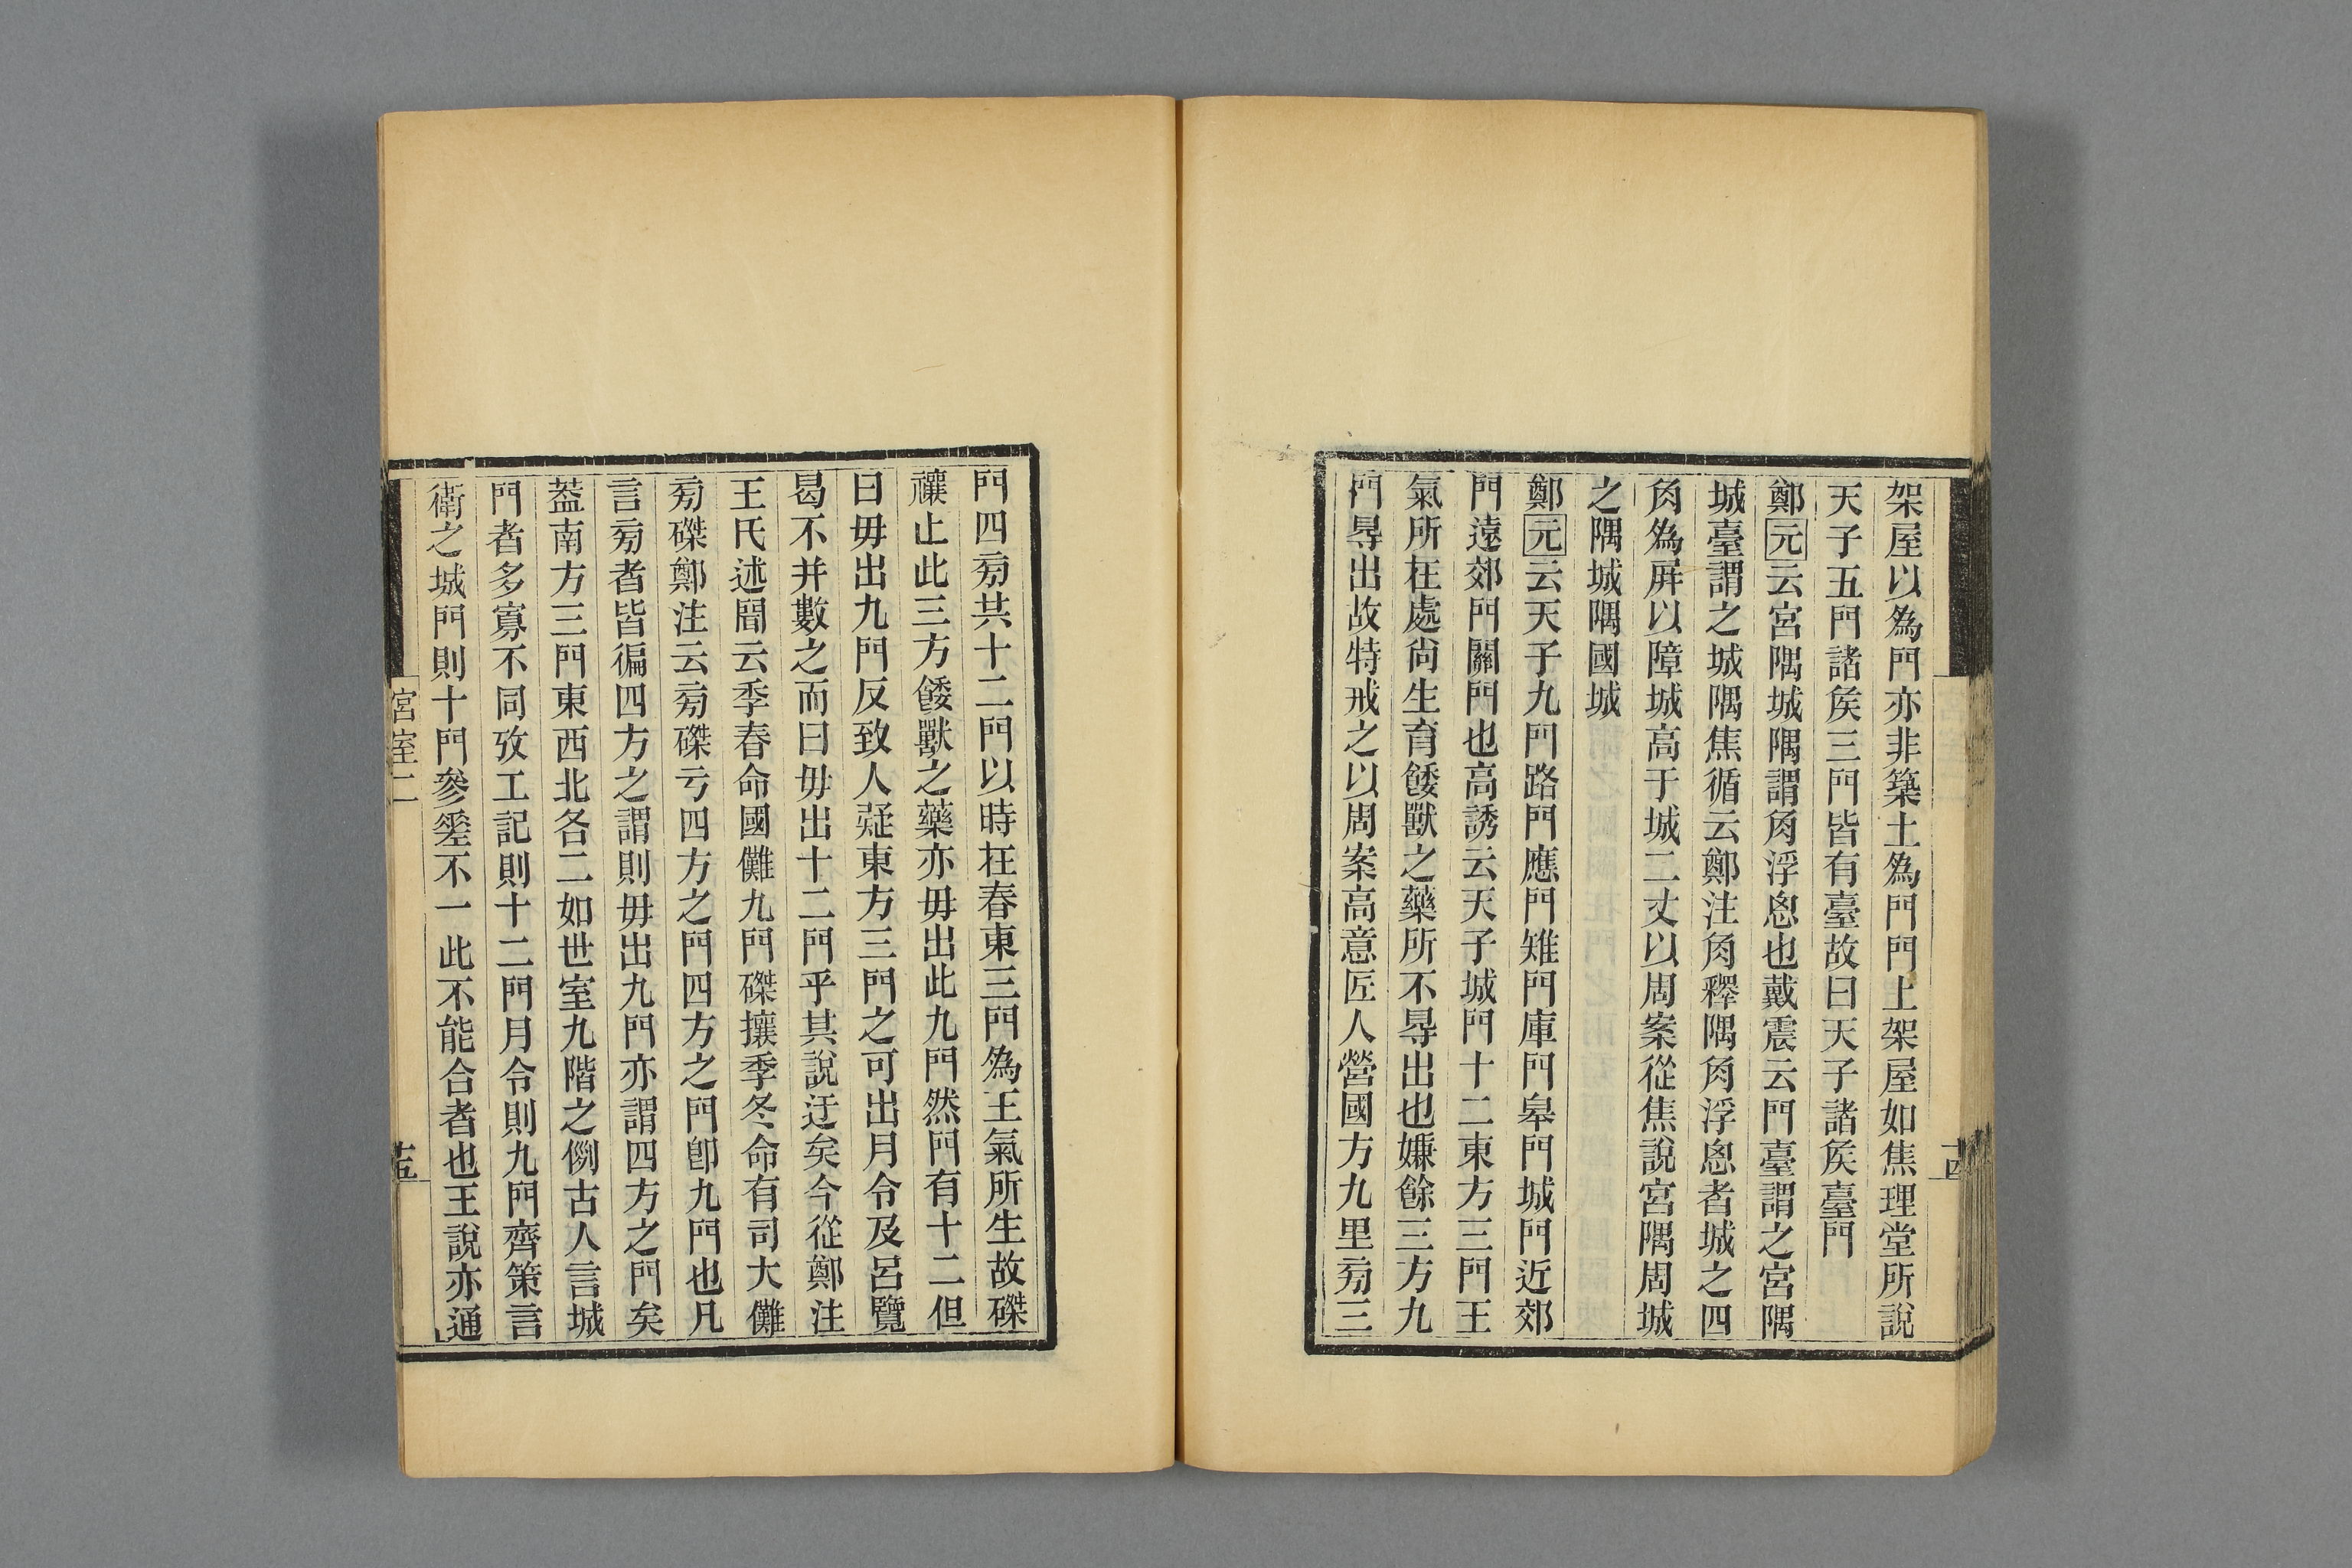 架屋以為門亦非築土為門門上架屋如焦理堂所說
天子五門諸矦三門皆有臺故曰天子諸矦臺門
鄭元云宮隅城隅謂角浮思也戴震云門臺謂之宮隅
城臺謂之城隅焦循云鄭注角釋隅角浮思者城之四
角為屏以障城高于城二丈以周案從焦說宮隅周城
之隅城隅國城
鄭元云天子九門路門應門雉門庫門皋門城門近郊
門遠郊門關門也高誘云天子城門十二東方三門王
氣所在處尚生育餧獸之藥所不㝵出也嫌餘三方九
門㝵出故特戒之以周案高意匠人營國方九里㫄三
門四㫄共十二門以時在春東三門為王氣所生故磔
禳止此三方餧獸之藥亦毋出此九門然門有十二但
曰毋出九門反致人疑東方三門之可出月令及呂覽
曷不并數之而曰毋出十二門乎其說迂矣今從鄭注
王氏述聞云季春命國儺九門磔攘季冬命有司大儺
㫄磔鄭注云㫄磔亏四方之門四方之門卽九門也凡
言㫄者皆徧四方之謂則毋出九門亦謂四方之門矣
葢南方三門東西北各二如世室九階之例古人言城
門者多寡不同攷工記則十二門月令則九門齊策言
衛之城門則十門參差不一此不能合者也王說亦通
宮室二
十五
十四